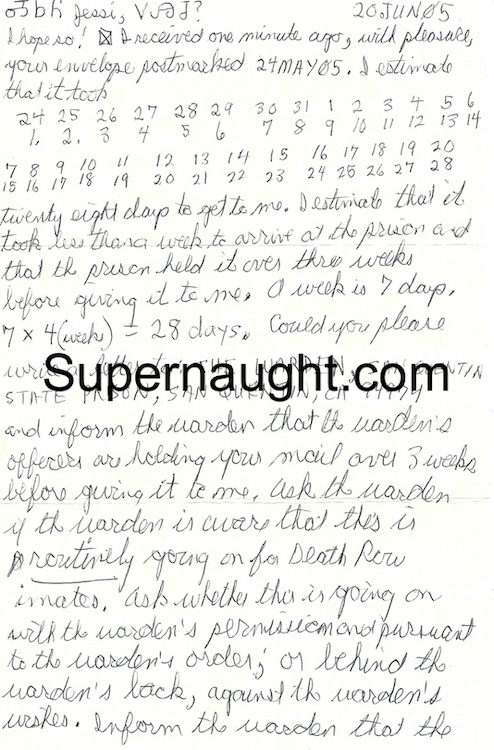 Jessi, 20JUN05
I hope so! I received one minute ago, with pleasure,
your envelope postmarked 24MAY05. I estimate
that it took
24 25 26 27 28 29 30 31 1 2 3 4 5 6
1. 2. 3 4 5 6 7 8 9 10 11 12 13 14
7 8 9 10 11 12 13 14 15 16 17 18 19 20
15 16 17 18 19 20 21 22 23 24 25 26 27 28
twenty eight days to get to me. I estimate that it
took less than a week to arrive at the prison and
that th prison held it over three weeks
before giving it to me. A week is 7 days.
7 x 4(weeks) = 28 days. Could you please
Supernaught.com
STATE PRISON, SAN QUENTIN, CA
and inform the warden that th warden's
officers are holding your mail over 3 weeks
before giving it to me. Ask th warden
if th warden is aware that this is
routinely going on for Death Row
inmates. Ask whether this is going on
with th warden's permission and pursuant
to th warden's order; or behind th
warden's back, against th warden's
wishes. Inform th warden that the